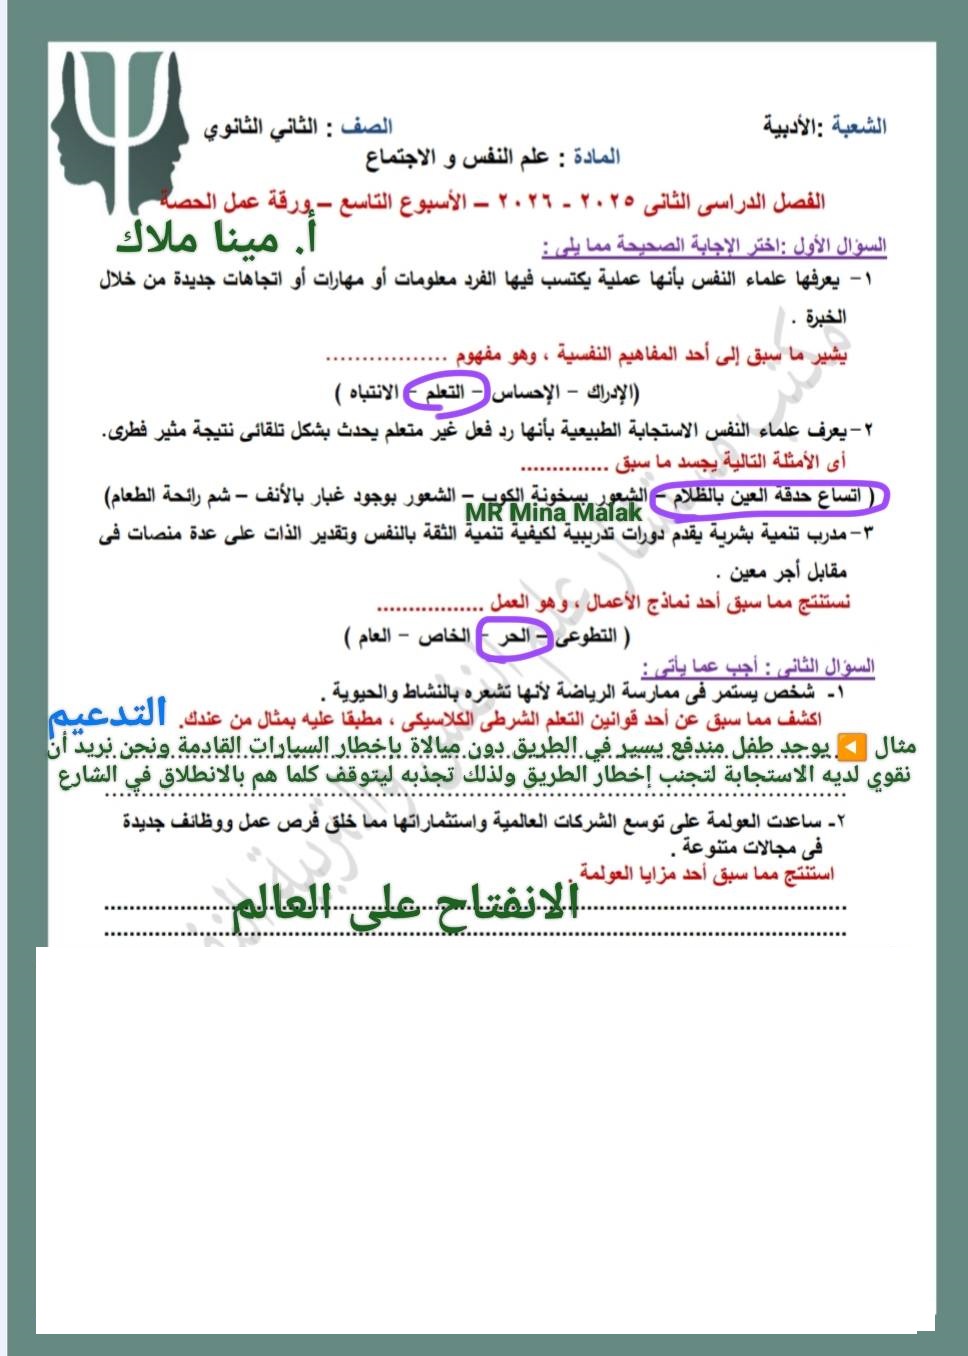 الشعبة :الأدبية
الصف : الثاني الثانوي
المادة : علم النفس و الاجتماع
الفصل الدراسى الثانى ٢٠٢٥ - ٢٠٢٦ – الأسبوع التاسع – ورقة عمل الحصة
أ. مينا ملاك
السؤال الأول :اختر الإجابة الصحيحة مما يلى :
١- يعرفها علماء النفس بأنها عملية يكتسب فيها الفرد معلومات أو مهارات أو اتجاهات جديدة من خلال
الخبرة .
يشير ما سبق إلى أحد المفاهيم النفسية ، وهو مفهوم .................
(الإدراك – الإحساس – التعلم – الانتباه )
٢-يعرف علماء النفس الاستجابة الطبيعية بأنها رد فعل غير متعلم يحدث بشكل تلقائى نتيجة مثير فطرى.
أى الأمثلة التالية يجسد ما سبق ..............
( اتساع حدقة العين بالظلام – الشعور بسخونة الكوب – الشعور بوجود غبار بالأنف – شم رائحة الطعام)
MR Mina Malak
٣-مدرب تنمية بشرية يقدم دورات تدريبية لكيفية تنمية الثقة بالنفس وتقدير الذات على عدة منصات فى
مقابل أجر معين .
نستنتج مما سبق أحد نماذج الأعمال ، وهو العمل .................
( التطوعى – الحر – الخاص – العام )
السؤال الثانى : أجب عما يأتى :
١- شخص يستمر فى ممارسة الرياضة لأنها تشعره بالنشاط والحيوية .
اكشف مما سبق عن أحد قوانين التعلم الشرطى الكلاسيكى ، مطبقا عليه بمثال من عندك. التدعيم
مثال ◀ يوجد طفل مندفع يسير في الطريق دون مبالاة باخطار السيارات القادمة ونحن نريد أن
نقوي لديه الاستجابة لتجنب إخطار الطريق ولذلك تجذبه ليتوقف كلما هم بالانطلاق في الشارع
٢- ساعدت العولمة على توسع الشركات العالمية واستثماراتها مما خلق فرص عمل ووظائف جديدة
فى مجالات متنوعة .
استنتج مما سبق أحد مزايا العولمة .
الانفتاح على العالم
مكتب مستشار علم النفس والتربية